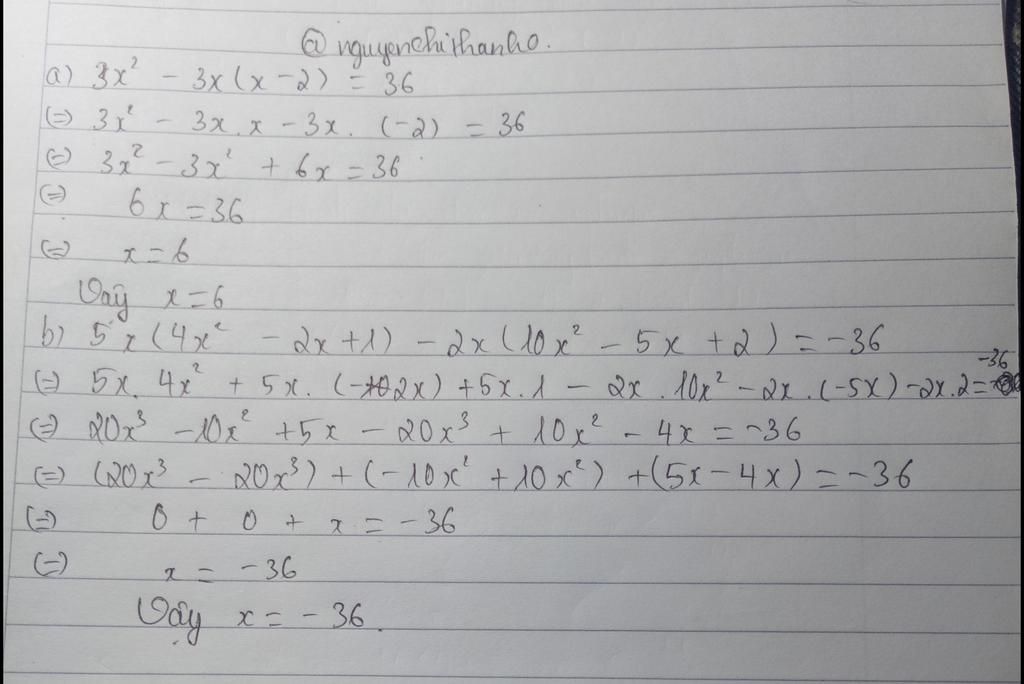 @nguyenchithanho.
a) 3x² - 3x(x-2) = 36
(=) 3x² - 3x.x - 3x. (-2) = 36
(=) 3x² - 3x² + 6x = 36
(=) 6x = 36
(=) x = 6
Vậy x = 6
b) 5x(4x² - 2x + 1) - 2x(10x² - 5x + 2) = -36
(=) 5x. 4x² + 5x. (-2x) + 5x.1 - 2x.10x² - 2x.(-5x) - 2x.2 = -36
(=) 20x³ - 10x² + 5x - 20x³ + 10x² - 4x = -36
(=) (20x³ - 20x³) + (-10x² + 10x²) + (5x - 4x) = -36
(=) 0 + 0 + x = -36
(=) x = -36
Vậy x = -36.